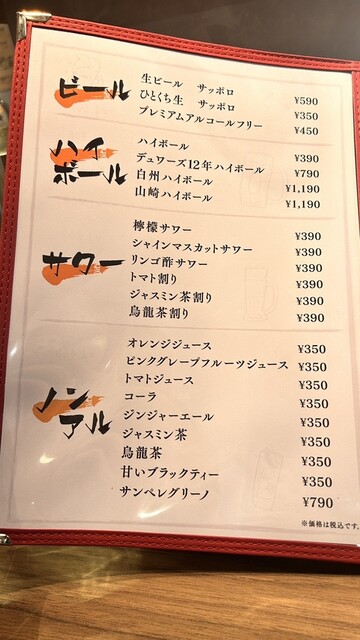 ビール
生ビール サッポロ ¥590
ひとくち生 サッポロ ¥350
プレミアムアルコールフリー ¥450
ハイボール
ハイボール ¥390
デュワーズ12年ハイボール ¥790
白州ハイボール ¥1,190
山崎ハイボール ¥1,190
サワー
檸檬サワー ¥390
シャインマスカットサワー ¥390
リンゴ酢サワー ¥390
トマト割り ¥390
ジャスミン茶割り ¥390
烏龍茶割り ¥390
ノンアル
オレンジジュース ¥350
ピンクグレープフルーツジュース ¥350
トマトジュース ¥350
コーラ ¥350
ジンジャーエール ¥350
ジャスミン茶 ¥350
烏龍茶 ¥350
甘いブラックティー ¥350
サンペレグリーノ ¥790
※価格は税込です。